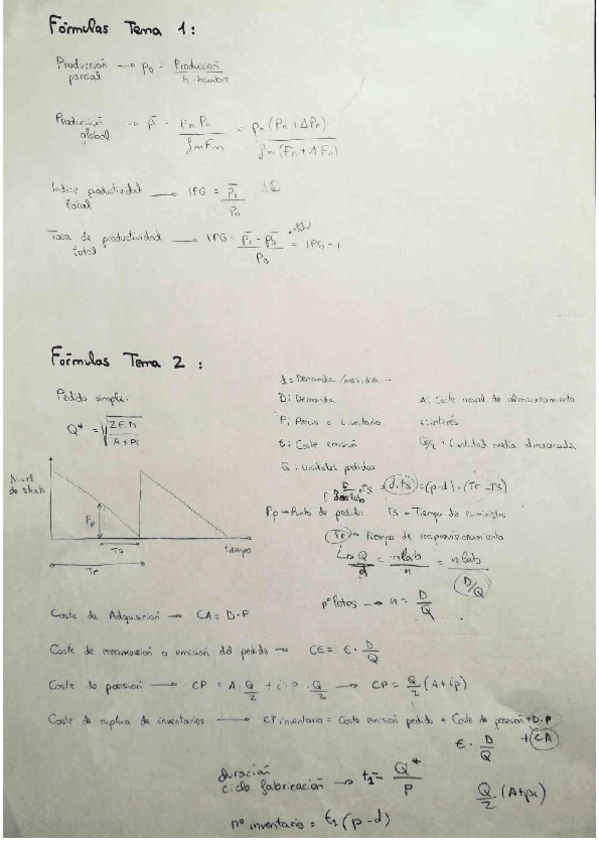 Fórmulas Tema 1:
Producción parcial → P0 = Producción / h-hombre
Producción global → P̄ = pn Pn / fm Fm = pn (Pn + ΔPn) / fm (Fm + ΔFn)
Índice productividad total → IPG = P̄1 / P0
Tasa de productividad total → TPG = P̄1 - P̄0 / P0 = IPG - 1
Fórmulas Tema 2:
Pedido simple:
Q* = √(2·E·D / A + Pi)
d = Demanda/mes, día...
D: Demanda
A: Coste anual de almacenamiento
P: Precio o inventario
i: interés
E: Coste emisión
Q/2 = Cantidad media almacenada
Q: Unidades pedidas
Ts = d·ts = (p-d)·(Tr-Ts)
Pp → Punto de pedido
Ts = Tiempo de suministro
Tr = Tiempo de reaprovisionamiento
Q/d = nlab / n = nlab / D/Q
nº lotes → n = D/Q
Nivel de stock
Ts
Tr
tiempo
Coste de Adquisición → CA = D·P
Coste de renovación o emisión del pedido → CE = E · D/Q
Coste de posesión → CP = A · Q/2 + i · P · Q/2 → CP = Q/2 (A + ip)
Coste de ruptura de inventarios → CT inventario = Coste emisión pedido + Coste de posesión + D·P
E · D/Q
+ CA
Q/2 (A+pi)
duración ciclo fabricación → t1 = Q* / P
nº inventario = t1 (p-d)